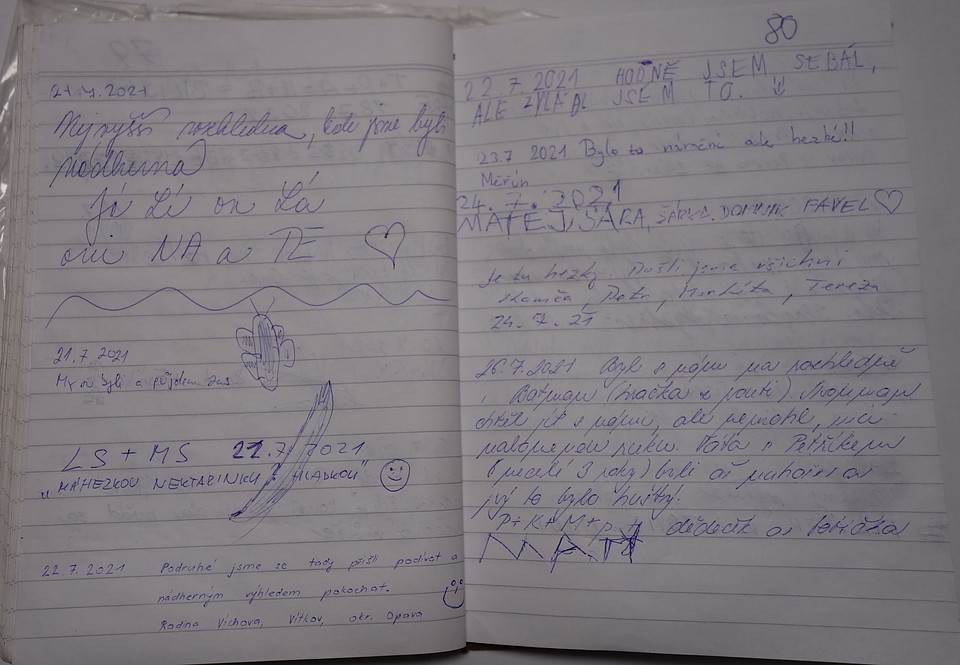 21.7.2021
Nejvyšší rozhledna, kde jsme byli
nádherná
Já Lí on Lá
oni NA a TE
21.7.2021
My tu byli a půjdem zas
LS + MS 21.7.2021
"MÁ HEZKOU NEKTARINKU HLADKOU"
22.7.2021 Podruhé jsme se tady přišli podívat a
nádherným výhledem pokochat.
Rodina Vichova, Vítkov, okr. Opava
80
22.7.2021 HODNĚ JSEM SE BÁL,
ALE ZVLÁDL JSEM TO.
23.7 2021 Bylo to náročné ale hezké!!
Měřín
24.7.2021
MATĚJ, SÁRA, ŠÁRKA, DOMINIK PAVEL
Je tu hezky. Došli jsme všichni
Petr, Markéta, Tereza
24.7.21
26.7.2021 Byl s námi na rozhledně
i Batman (hračka z pouti).
chtěl jít s námi, ale nemohl, má
nalomenou ruku. Táta s Petříkem
(necelé 3 roky) byli až nahoře a
prý to bylo hustý.
P+K+M+P + dědeček a babička